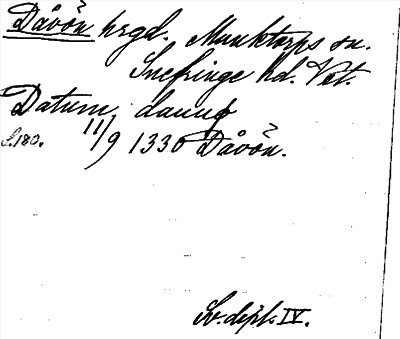 Dåvön hrgd. Munktorps sn.
Snefringe hd. Vst.
Datum dauuø
S.180. 11/9 1330 Dåvön.
Sv. dipl. IV.